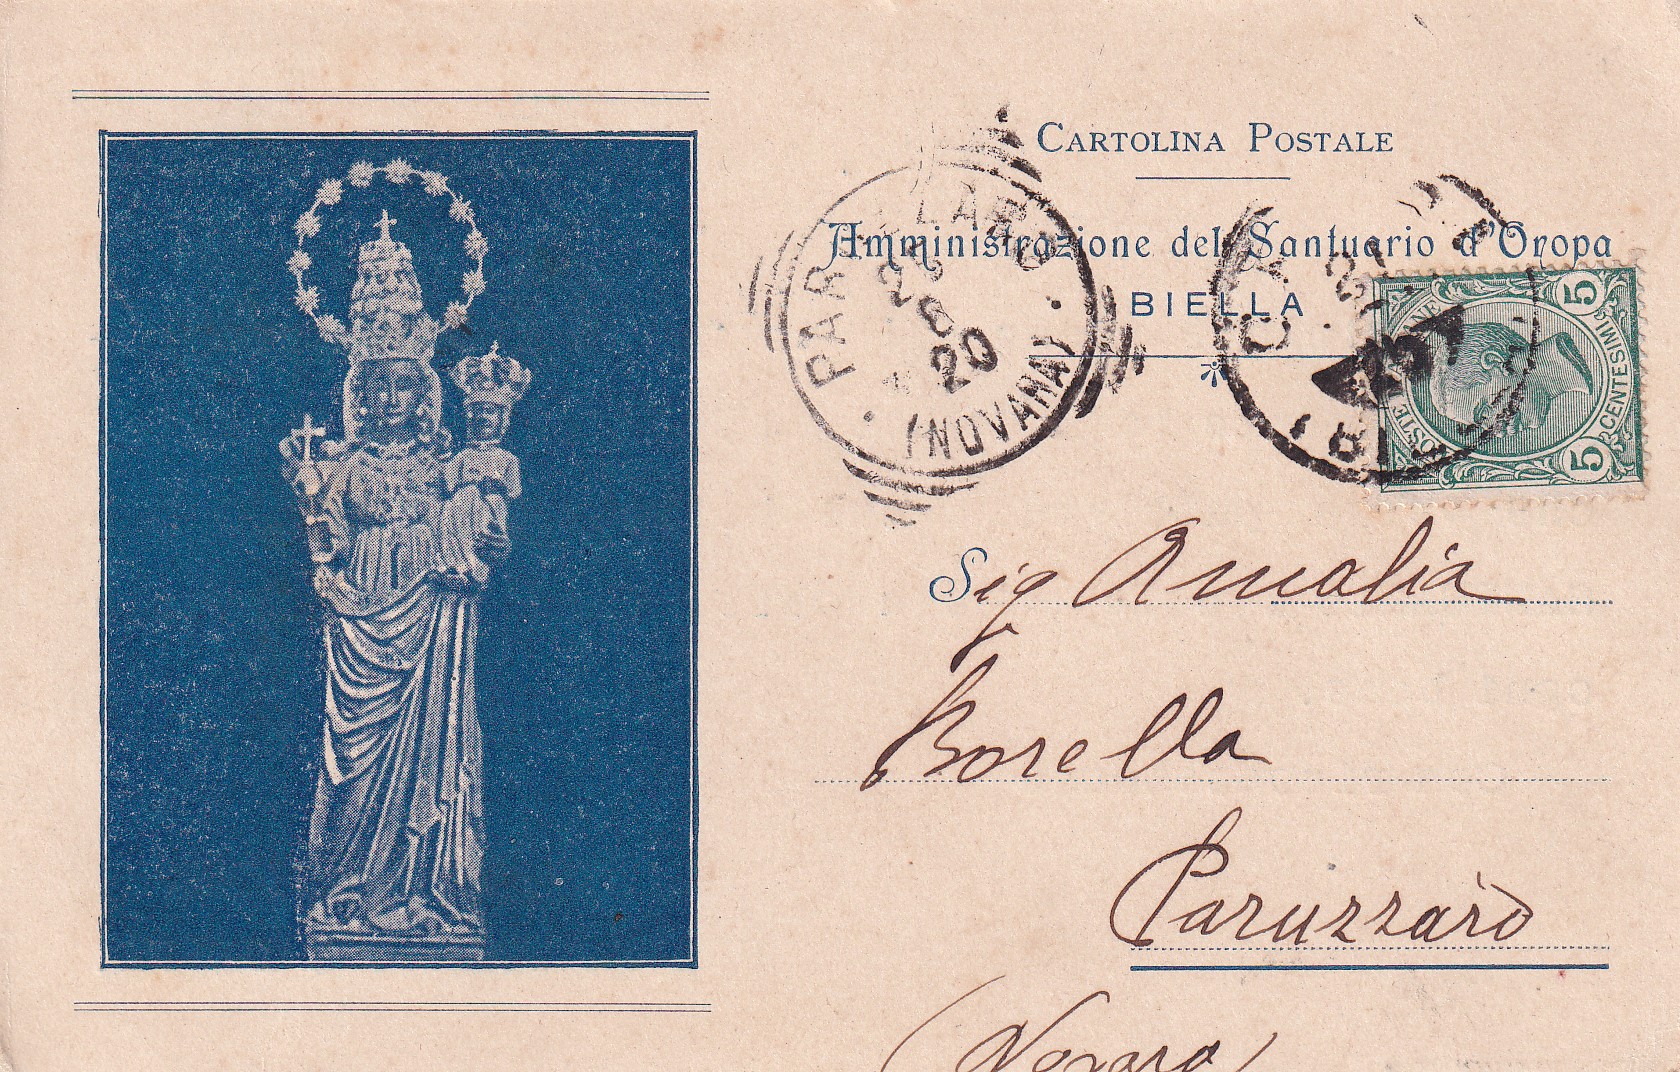 CARTOLINA POSTALE
Amministrazione del Santuario d'Oropa
BIELLA
20
(NOVARA)
5 CENTESIMI 5
Sig Amalia
Borella
Paruzzaro
(Novara)